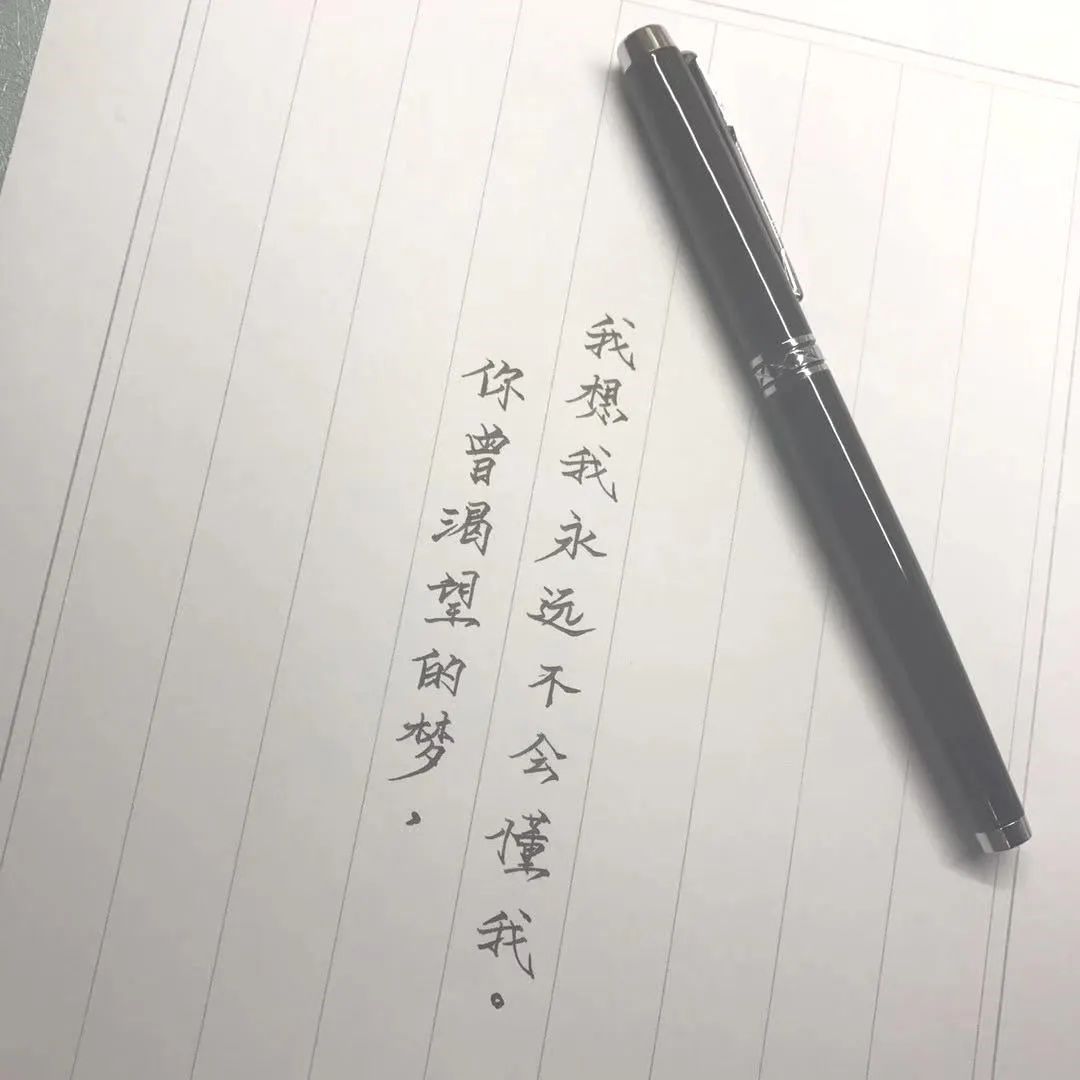 我想我永远不会懂我。
你曾渴望的梦，